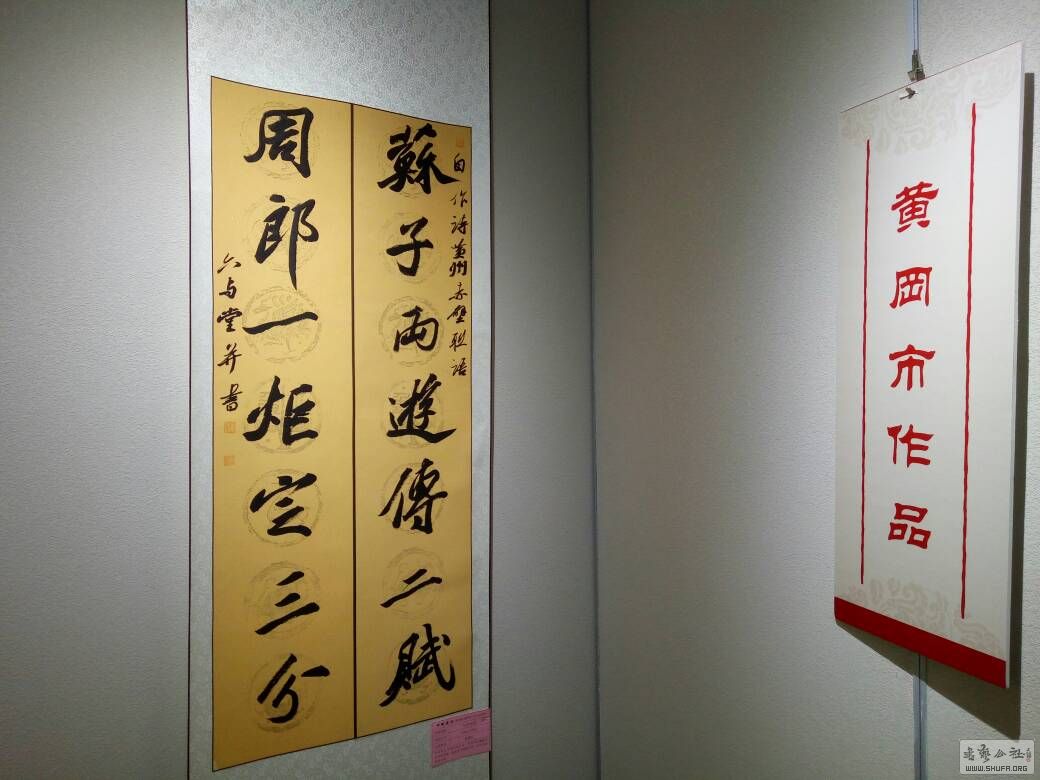 自作詩黃州赤壁聯語
蘇子兩遊傳二賦
周郎一炬定三分
六与堂并書
黄岡市作品
书艺公社
WWW.SHUFA.ORG